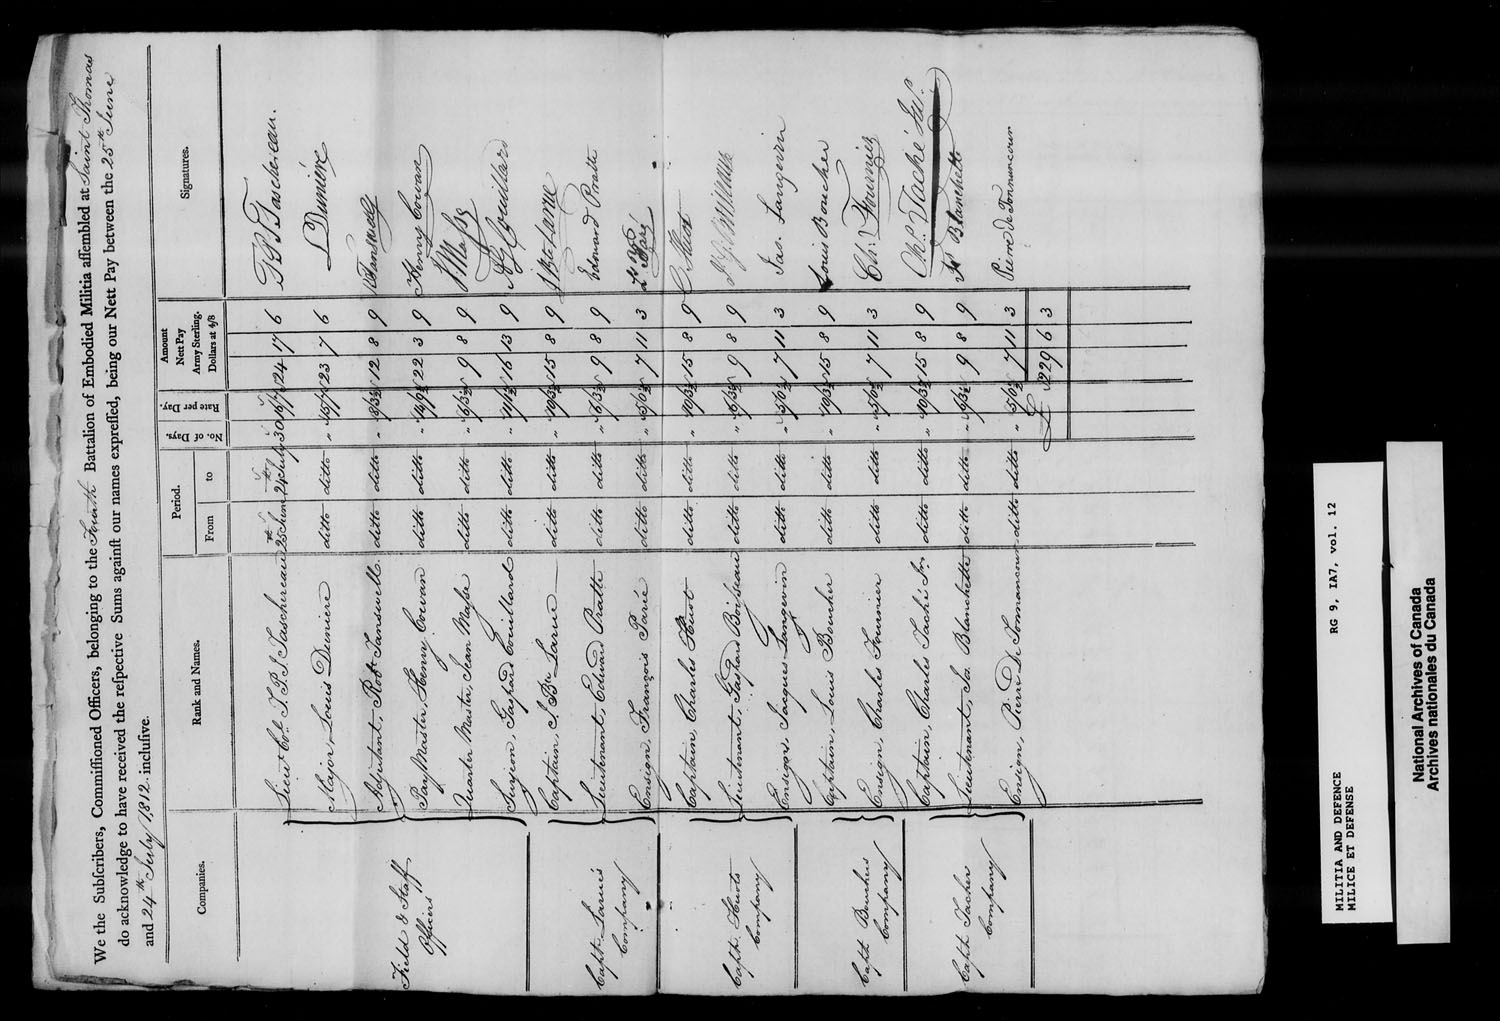 We the Subſcribers, Commiſſioned Officers, belonging to the Fourth Battalion of Embodied Militia aſſembled at Saint Thomas
do acknowledge to have received the reſpective Sums againſt our names expreſſed, being our Nett Pay between the 25th June
and 24th July 1812. incluſive.
Companies. Rank and Names. Period. From to No. of Days. Rate per Day. Amount Nett Pay Army Sterling. Dollars at 4/8 Signatures.
Field & Staff Officers
Lieut Col. T. P. J. Taschereau 25th June 24th July 30 24 17 6 TPJ Taschereau.
Major, Louis Duniere ditto ditto " 23 7 6 L Dunière
Adjutant, Robt Tanswell ditto ditto " 12 8 9
Pay Master, Henry Cowan ditto ditto " 22 3 9 Henny Cowan
Quarter Master, Jean Masse ditto ditto " 6/3½ 9 8 9 J Masse
Surgeon, Gaspard Couillard ditto ditto " 16 13 9 G Couillard
Capt. Larue's Company
Captain, J. Bte Larue ditto ditto " 10/3½ 15 8 9 J Bte Larue
Lieutenant, Edward Pratte ditto ditto " 6/3½ 9 8 9 Edouard Pratte
Ensign, François Paré ditto ditto " 5/0½ 7 11 3
Capt. Huot's Company
Captain, Charles Huot ditto ditto " 10/3½ 15 8 9 C Huot
Lieutenant, Gaspard Boisseau ditto ditto " 6/3½ 9 8 9
Ensign, Jacques Langevin ditto ditto " 5/0½ 7 11 3 Jas. Langevin
Capt. Bouchers Company
Captain, Louis Boucher ditto ditto " 10/3½ 15 8 9 Louis Boucher
Ensign, Charles Fournier ditto ditto " 5/0½ 7 11 3 Ch. Fournier
Capt. Taches Company
Captain, Charles Taché Jr. ditto ditto " 10/3½ 15 8 9 Chs. Taché
Lieutenant, Fs. Blanchette ditto ditto " 6/3½ 9 8 9 Fs Blanchette
Ensign, Pierre De Tonnancour ditto ditto " 5/0½ 7 11 3 Pierre De Tonnancour
£ 229 6 3
MILITIA AND DEFENCE RG 9, IA7, vol. 12
MILICE ET DEFENSE
National Archives of Canada
Archives nationales du Canada